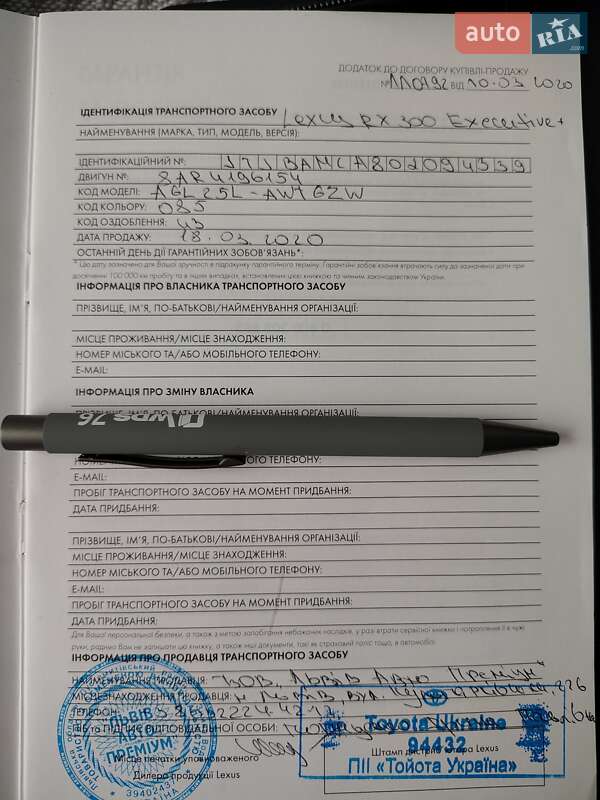 auto RIA .com
ДОДАТОК ДО ДОГОВОРУ КУПІВЛІ-ПРОДАЖУ
№ 110992 ВІД 10.03 2020
ІДЕНТИФІКАЦІЯ ТРАНСПОРТНОГО ЗАСОБУ
Lexus RX 300 Executive+
НАЙМЕНУВАННЯ (МАРКА, ТИП, МОДЕЛЬ, ВЕРСІЯ):
ІДЕНТИФІКАЦІЙНИЙ №: JTJBAMCA802094539
ДВИГУН №: 8AR4196154
КОД МОДЕЛІ: AGL25L-AWTGZW
КОД КОЛЬОРУ: 085
КОД ОЗДОБЛЕННЯ: 43
ДАТА ПРОДАЖУ: 18.03.2020
ОСТАННІЙ ДЕНЬ ДІЇ ГАРАНТІЙНИХ ЗОБОВ'ЯЗАНЬ*:
* Цю дату зазначено для Вашої зручності в підрахунку гарантійного терміну. Гарантійні зобов'язання втрачають силу до зазначеної дати при
досягненні 100 000 км пробігу та в інших випадках, встановлених цією книжкою та чинним законодавством України.
ІНФОРМАЦІЯ ПРО ВЛАСНИКА ТРАНСПОРТНОГО ЗАСОБУ
ПРІЗВИЩЕ, ІМ'Я, ПО-БАТЬКОВІ/НАЙМЕНУВАННЯ ОРГАНІЗАЦІЇ:
МІСЦЕ ПРОЖИВАННЯ/МІСЦЕ ЗНАХОДЖЕННЯ:
НОМЕР МІСЬКОГО ТА/АБО МОБІЛЬНОГО ТЕЛЕФОНУ:
E-MAIL:
ІНФОРМАЦІЯ ПРО ЗМІНУ ВЛАСНИКА
ПРІЗВИЩЕ, ІМ'Я, ПО-БАТЬКОВІ/НАЙМЕНУВАННЯ ОРГАНІЗАЦІЇ:
WDS 76
НОМЕР МІСЬКОГО ТА/АБО МОБІЛЬНОГО ТЕЛЕФОНУ:
E-MAIL:
ПРОБІГ ТРАНСПОРТНОГО ЗАСОБУ НА МОМЕНТ ПРИДБАННЯ:
ДАТА ПРИДБАННЯ:
ПРІЗВИЩЕ, ІМ'Я, ПО-БАТЬКОВІ/НАЙМЕНУВАННЯ ОРГАНІЗАЦІЇ:
МІСЦЕ ПРОЖИВАННЯ/МІСЦЕ ЗНАХОДЖЕННЯ:
НОМЕР МІСЬКОГО ТА/АБО МОБІЛЬНОГО ТЕЛЕФОНУ:
E-MAIL:
ПРОБІГ ТРАНСПОРТНОГО ЗАСОБУ НА МОМЕНТ ПРИДБАННЯ:
ДАТА ПРИДБАННЯ:
Для Вашої персональної безпеки, а також з метою запобігання небажаних наслідків, у разі втрати сервісної книжки і потрапляння її в чужі
руки, радимо Вам не залишати цю книжку, а також інші документи, такі як страховий поліс тощо, в автомобілі.
ІНФОРМАЦІЯ ПРО ПРОДАВЦЯ ТРАНСПОРТНОГО ЗАСОБУ
НАЙМЕНУВАННЯ ПРОДАВЦЯ: ТзОВ "Львів Авто Преміум"
МІСЦЕЗНАХОДЖЕННЯ ПРОДАВЦЯ: м Львів вул 226
ТЕЛЕФОН:
ПІБ ТА ПІДПИС ВІДПОВІДАЛЬНОЇ ОСОБИ:
ЛЬВІВ АВТО ПРЕМІУМ
Toyota Ukraine
94432
ПІІ «Тойота Україна»
Місце печатки уповноваженого
Дилера продукції Lexus
Штамп дистриб'ютора Lexus